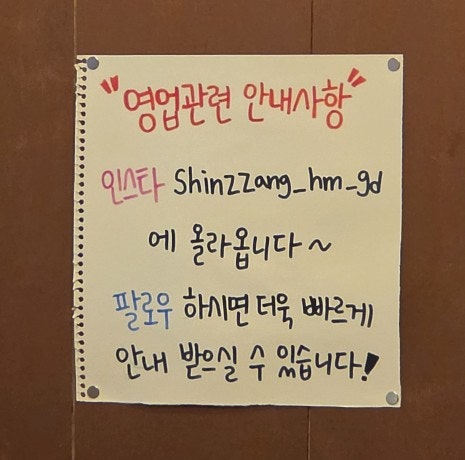 "영업관련 안내사항"
인스타 Shinzzang_hm_gd
에 올라옵니다~
팔로우 하시면 더욱 빠르게
안내 받으실 수 있습니다!